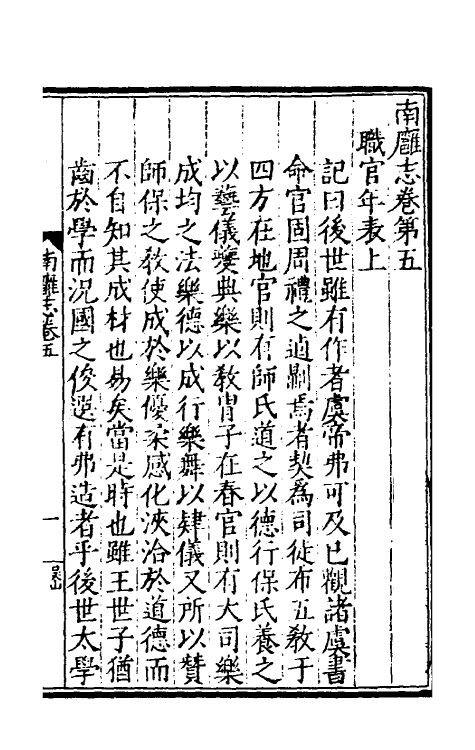 南廱志卷第五
職官年表上
記曰後世雖有作者虞帝弗可及已觀諸虞書
命官固周禮之適剬焉者契爲司徒布五教于
四方在地官則有師氏道之以德行保氏養之
以藝儀夔典樂以敎胄子在春官則有大司樂
成均之法樂德以成行樂舞以肄儀又所以贊
師保之敎使成於樂優柔感化浹洽於道德而
不自知其成材也易矣當是時也雖王世子猶
齒於學而況國之俊選有弗造者乎後世太學
南雝志卷五
一